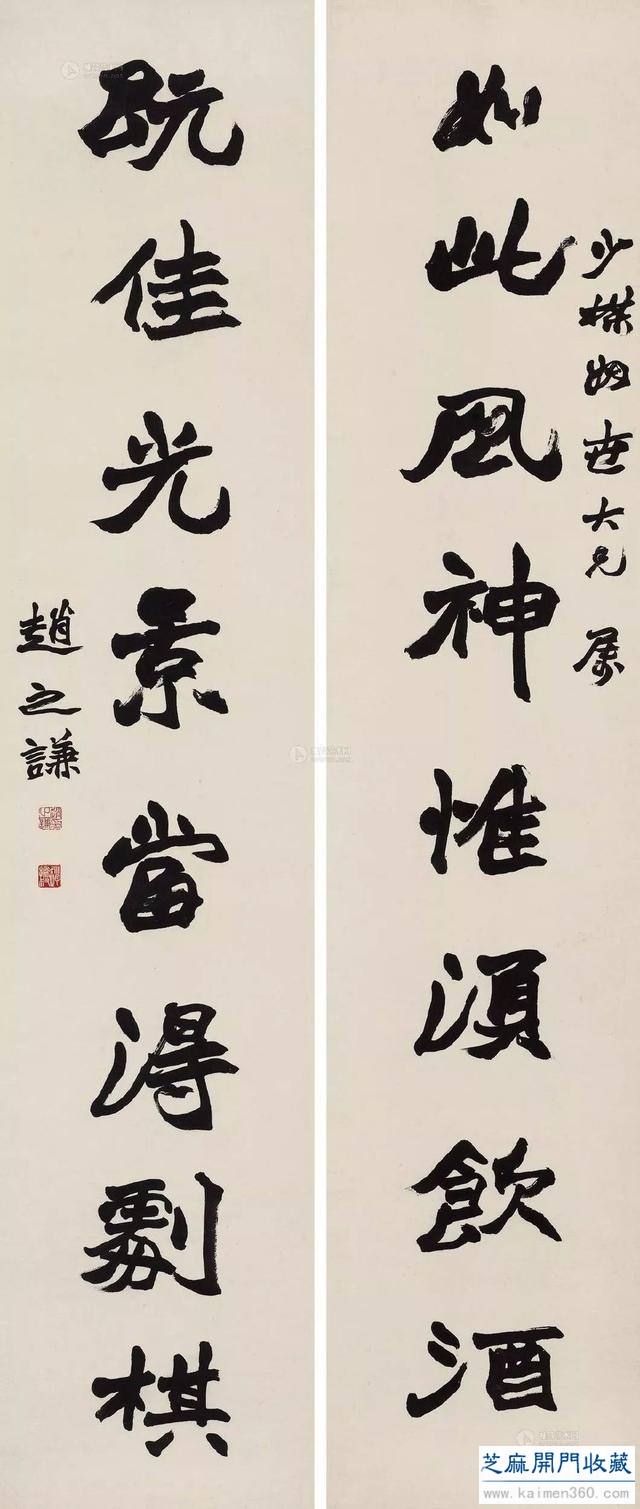 少棣姻世大兄 属
如此风神惟須飲酒
既佳光景當淂劇棋
趙之謙
芝麻開門收藏
www.kaimen360.com